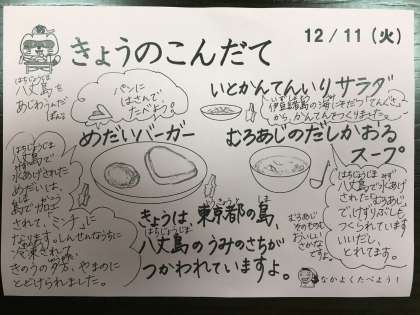 12/11(火)
きょうのこんだて
はちじょうじま
八丈島を
あじわうんだ
パンに
はさんで
たべよう。
いとかんてんいりサラダ
伊豆諸島の海にそだつ「てんぐさ」
から、かんてんをつくりました。
めだいバーガー
むろあじのだしかおる
スープ
はちじょうじま
八丈島で
水あげされた
めだいは、
島で加工
されて、「ミンチ」に
なります。しんせんなうちに
冷凍されて、
きのうの夕方、やまのに
とどけられました。
はちじょうじま
八丈島で水あげ
された「むろあじ」
で、けずりぶし
つくられています。
いいだし、
とれてます。
むろあじ
そのものも
おいしい
さかな
ですよ。
きょうは、東京都の島、
はちじょうじま
八丈島のうみのさちが
つかわれていますよ。
なかよくたべよう!